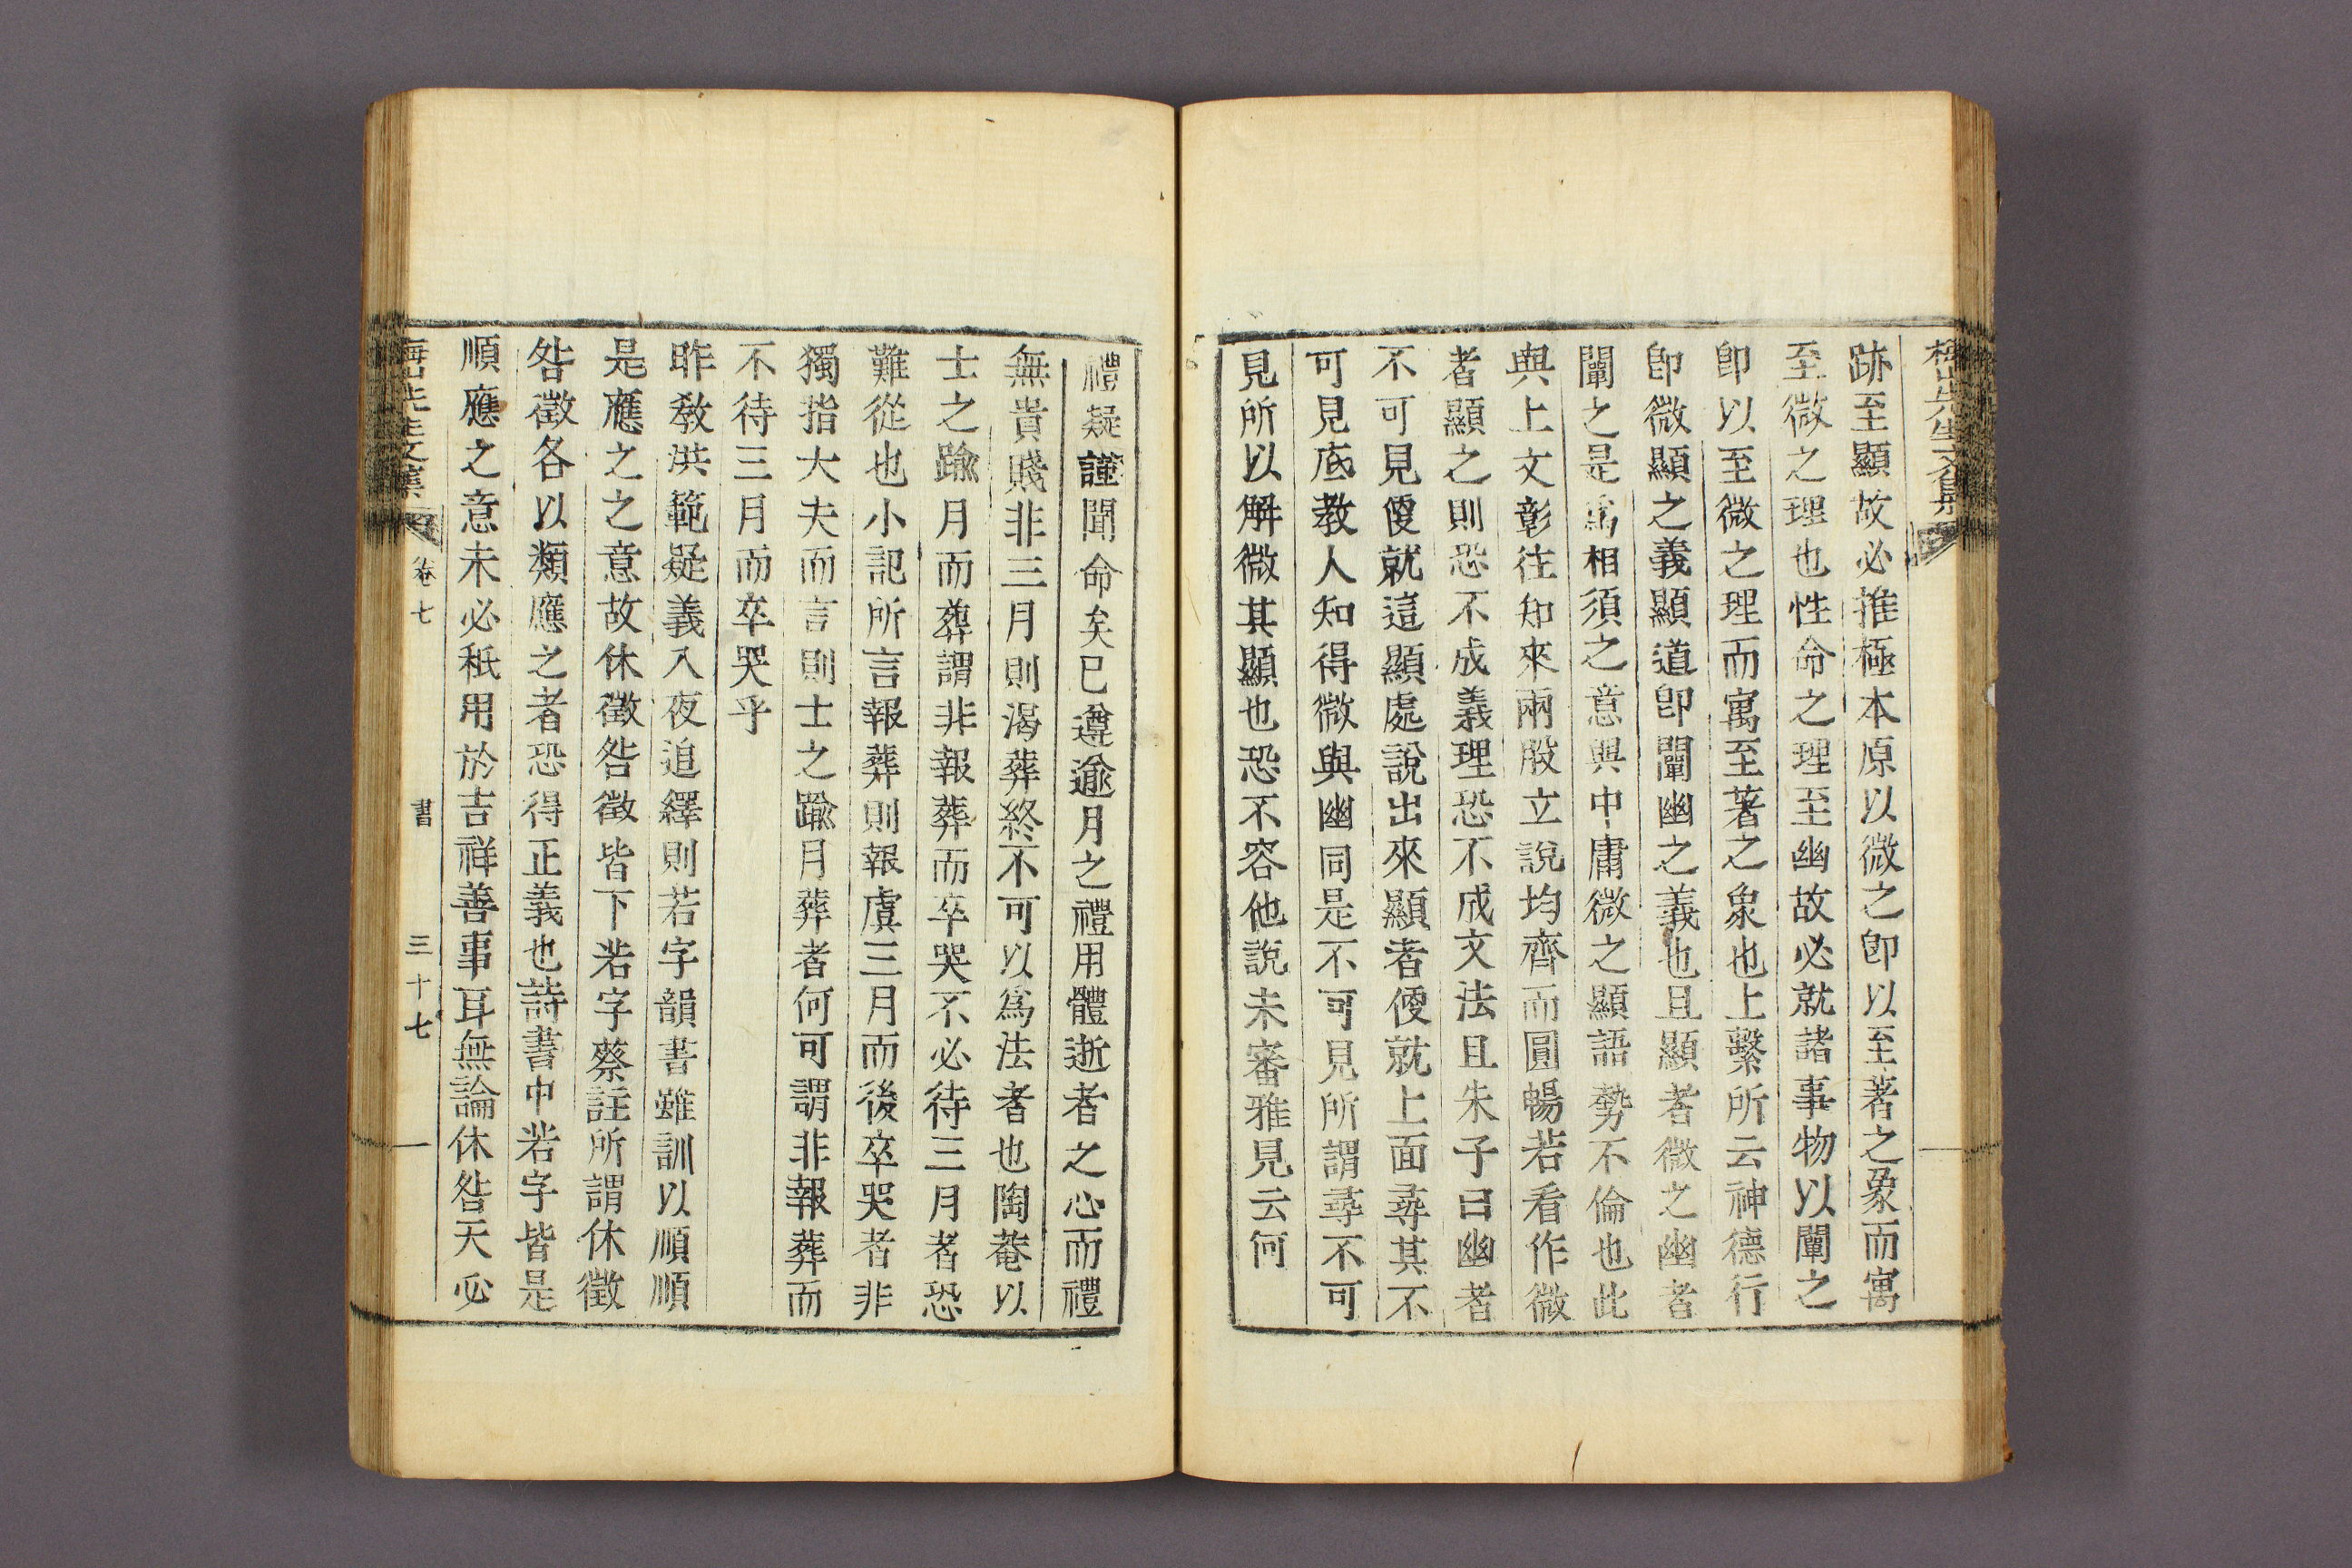 梅山先生文集
跡至顯故必推極本原以微之卽以至著之象而寓
至微之理也性命之理至幽故必就諸事物以闡之
卽以至微之理而寓至著之象也上繫所云神德行
卽微顯之義顯道卽闡幽之義也且顯者微之幽者
闡之是爲相須之意與中庸微之顯語勢不倫也此
與上文彰往知來兩股立說均齊而圓暢若看作微
者顯之則恐不成義理恐不成文法且朱子曰幽者
不可見便就這顯處說出來顯者便就上面尋其不
可見底教人知得微與幽同是不可見所謂尋不可
見所以解微其顯也恐不容他說未審雅見云何
禮疑謹聞命矣已遵逾月之禮用體逝者之心而禮
無貴賤非三月則渴葬終不可以爲法者也陶菴以
士之踰月而葬謂非報葬而卒哭不必待三月者恐
難從也小記所言報葬則報虞三月而後卒哭者非
獨指大夫而言則士之踰月葬者何可謂非報葬而
不待三月而卒哭乎
昨敎洪範疑義入夜追繹則若字韻書雖訓以順順
是應之之意故休徵咎徵皆下若字蔡註所謂休徵
咎徵各以類應之者恐得正義也詩書中若字皆是
順應之意未必秪用於吉祥善事耳無論休咎天必
梅山先生文集
卷七
書
三十七